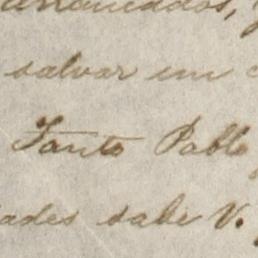 arrancados,
salvar em
Tanto Pablo
ades sabe V.